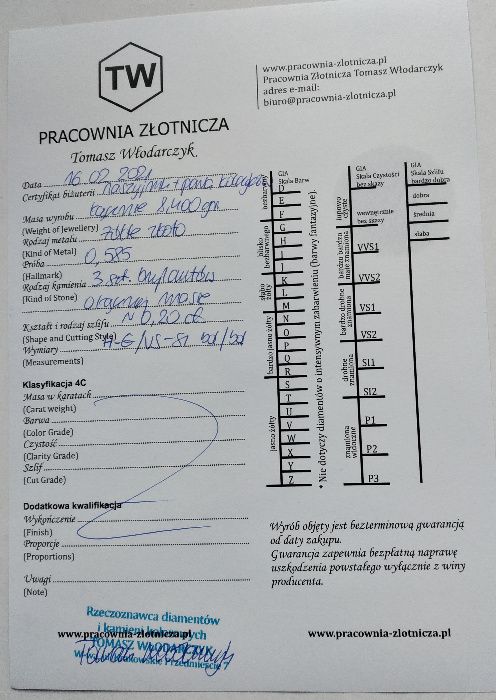 TW
PRACOWNIA ZŁOTNICZA
Tomasz Włodarczyk
www.pracownia-zlotnicza.pl
Pracownia Złotnicza Tomasz Włodarczyk
adres e-mail:
biuro@pracownia-zlotnicza.pl
Data 16.02.2021
Certyfikat biżuterii Naszyjnik + para kolczyków
Masa wyrobu łącznie 8,400 gr
(Weight of Jewellery)
Rodzaj metalu żółte złoto
(Kind of Metal)
Próba 0,585
(Hallmark)
Rodzaj kamienia 3 szt. brylantów
(Kind of Stone) o łącznej masie
Kształt i rodzaj szlifu ~ 0,20 ct
(Shape and Cutting Style)
Wymiary H-G/VS-SI bd/bd
(Measurements)
Klasyfikacja 4C
Masa w karatach
(Carat weight)
Barwa
(Color Grade)
Czystość
(Clarity Grade)
Szlif
(Cut Grade)
Dodatkowa kwalifikacja
Wykończenie
(Finish)
Proporcje
(Proportions)
Uwagi
(Note)
GIA
Skala Barw
bezbarwny
D
E
F
blisko bezbarwnego
G
H
I
J
słabo żółty
K
L
M
bardzo jasno żółty
N
O
P
Q
R
jasno żółty
S
T
U
V
W
X
Y
Z
* Nie dotyczy diamentów o intensywnym zabarwieniu (barwy fantazyjne).
GIA
Skala Czystości
bez skazy
lupowo czyste
wewnętrznie
bez skazy
bardzo bardzo mało znamiona
VVS1
VVS2
bardzo drobne znamiona
VS1
VS2
drobne znamiona
SI1
SI2
znamiona widoczne
P1
P2
P3
GIA
Skala Szlifu
bardzo dobra
dobra
średnia
słaba
Wyrób objęty jest bezterminową gwarancją
od daty zakupu.
Gwarancja zapewnia bezpłatną naprawę
uszkodzenia powstałego wyłącznie z winy
producenta.
Rzeczoznawca diamentów
i kamieni kolorowych
TOMASZ WŁODARCZYK
www.pracownia-zlotnicza.pl
www.pracownia-zlotnicza.pl